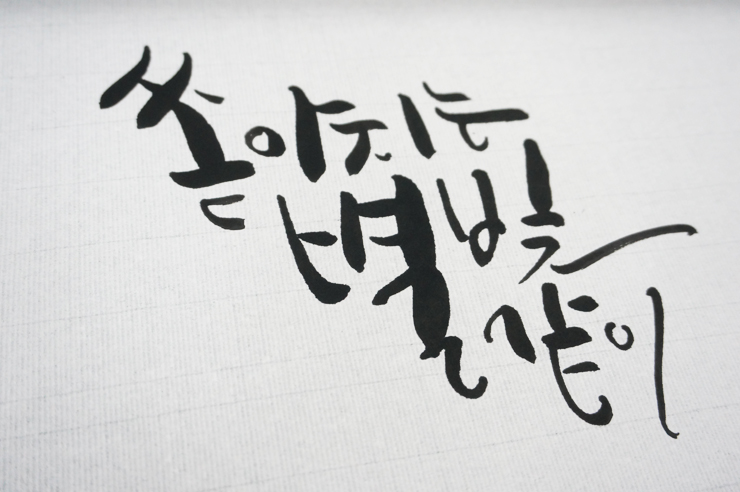 쏟아지는
별빛
같이